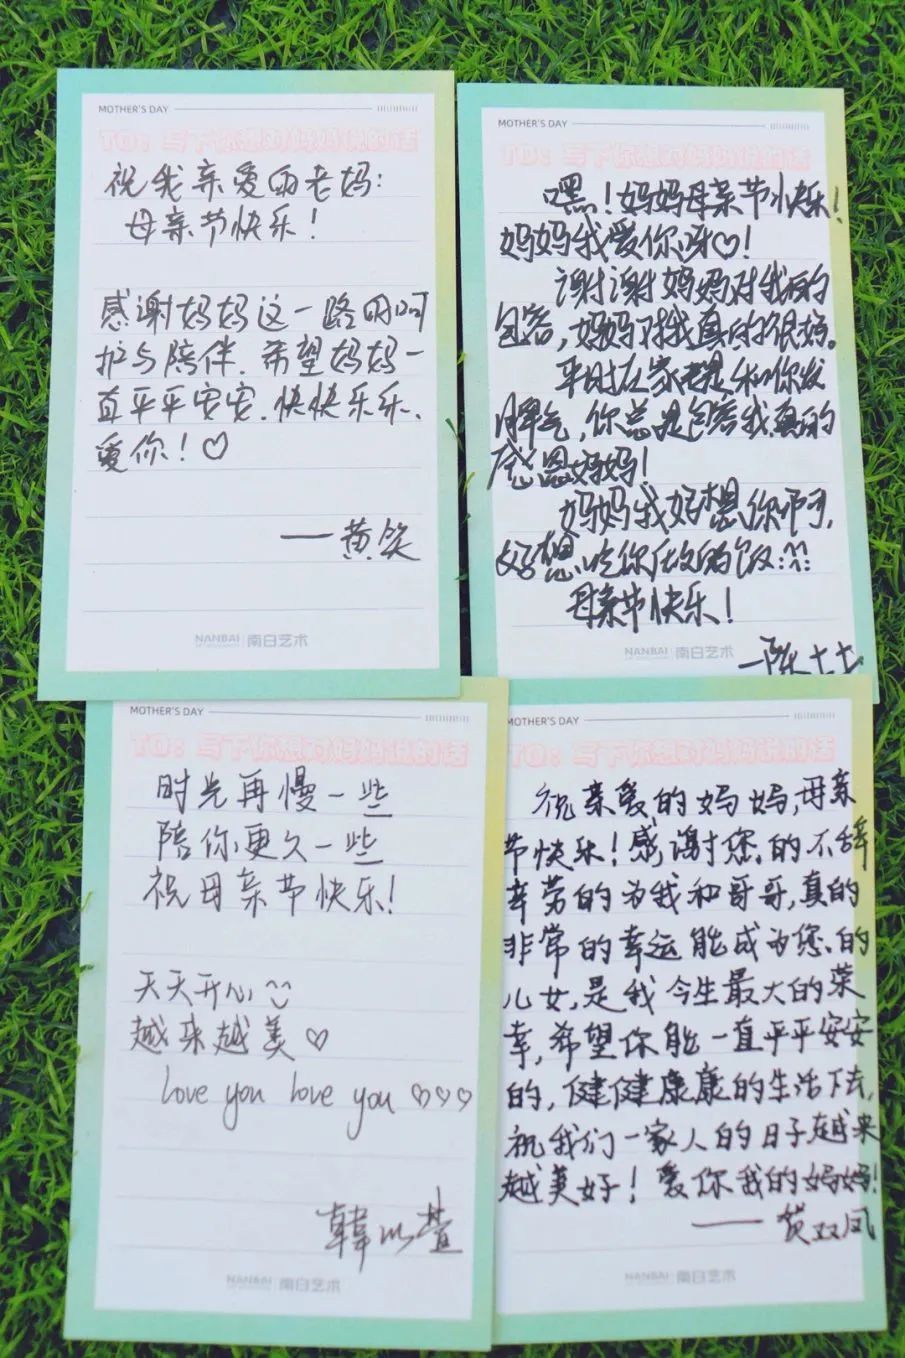 MOTHER'S DAY
TO：写下你想对妈妈说的话
祝我亲爱的老妈：
母亲节快乐！
感谢妈妈这一路的呵
护与陪伴.希望妈妈一
直平平安安.快快乐乐、
爱你！♡
—黄笑
NANBAI 南白艺术
MOTHER'S DAY
TO：写下你想对妈妈说的话
嘿！妈妈母亲节快乐！
妈妈我爱你呀♡！
谢谢妈妈对我的
包容，妈妈对我真的很好。
平时在家老是和你发
脾气，你总是包容我真的
感恩妈妈！
妈妈我好想你啊，
好想吃你做的饭
母亲节快乐！
—陈
NANBAI 南白艺术
MOTHER'S DAY
TO：写下你想对妈妈说的话
时光再慢一些
陪你更久一些
祝母亲节快乐！
天天开心
越来越美♡
love you love you ♡♡♡
韩以萱
NANBAI 南白艺术
MOTHER'S DAY
TO：写下你想对妈妈说的话
祝亲爱的妈妈，母亲
节快乐！感谢您的不辞
辛劳的为我和哥哥，真的
非常的幸运能成为您的
儿女，是我今生最大的荣
幸，希望你能一直平平安安
的，健健康康的生活下去，
祝我们一家人的日子越来
越美好！爱你我的妈妈！
——双凤
NANBAI 南白艺术